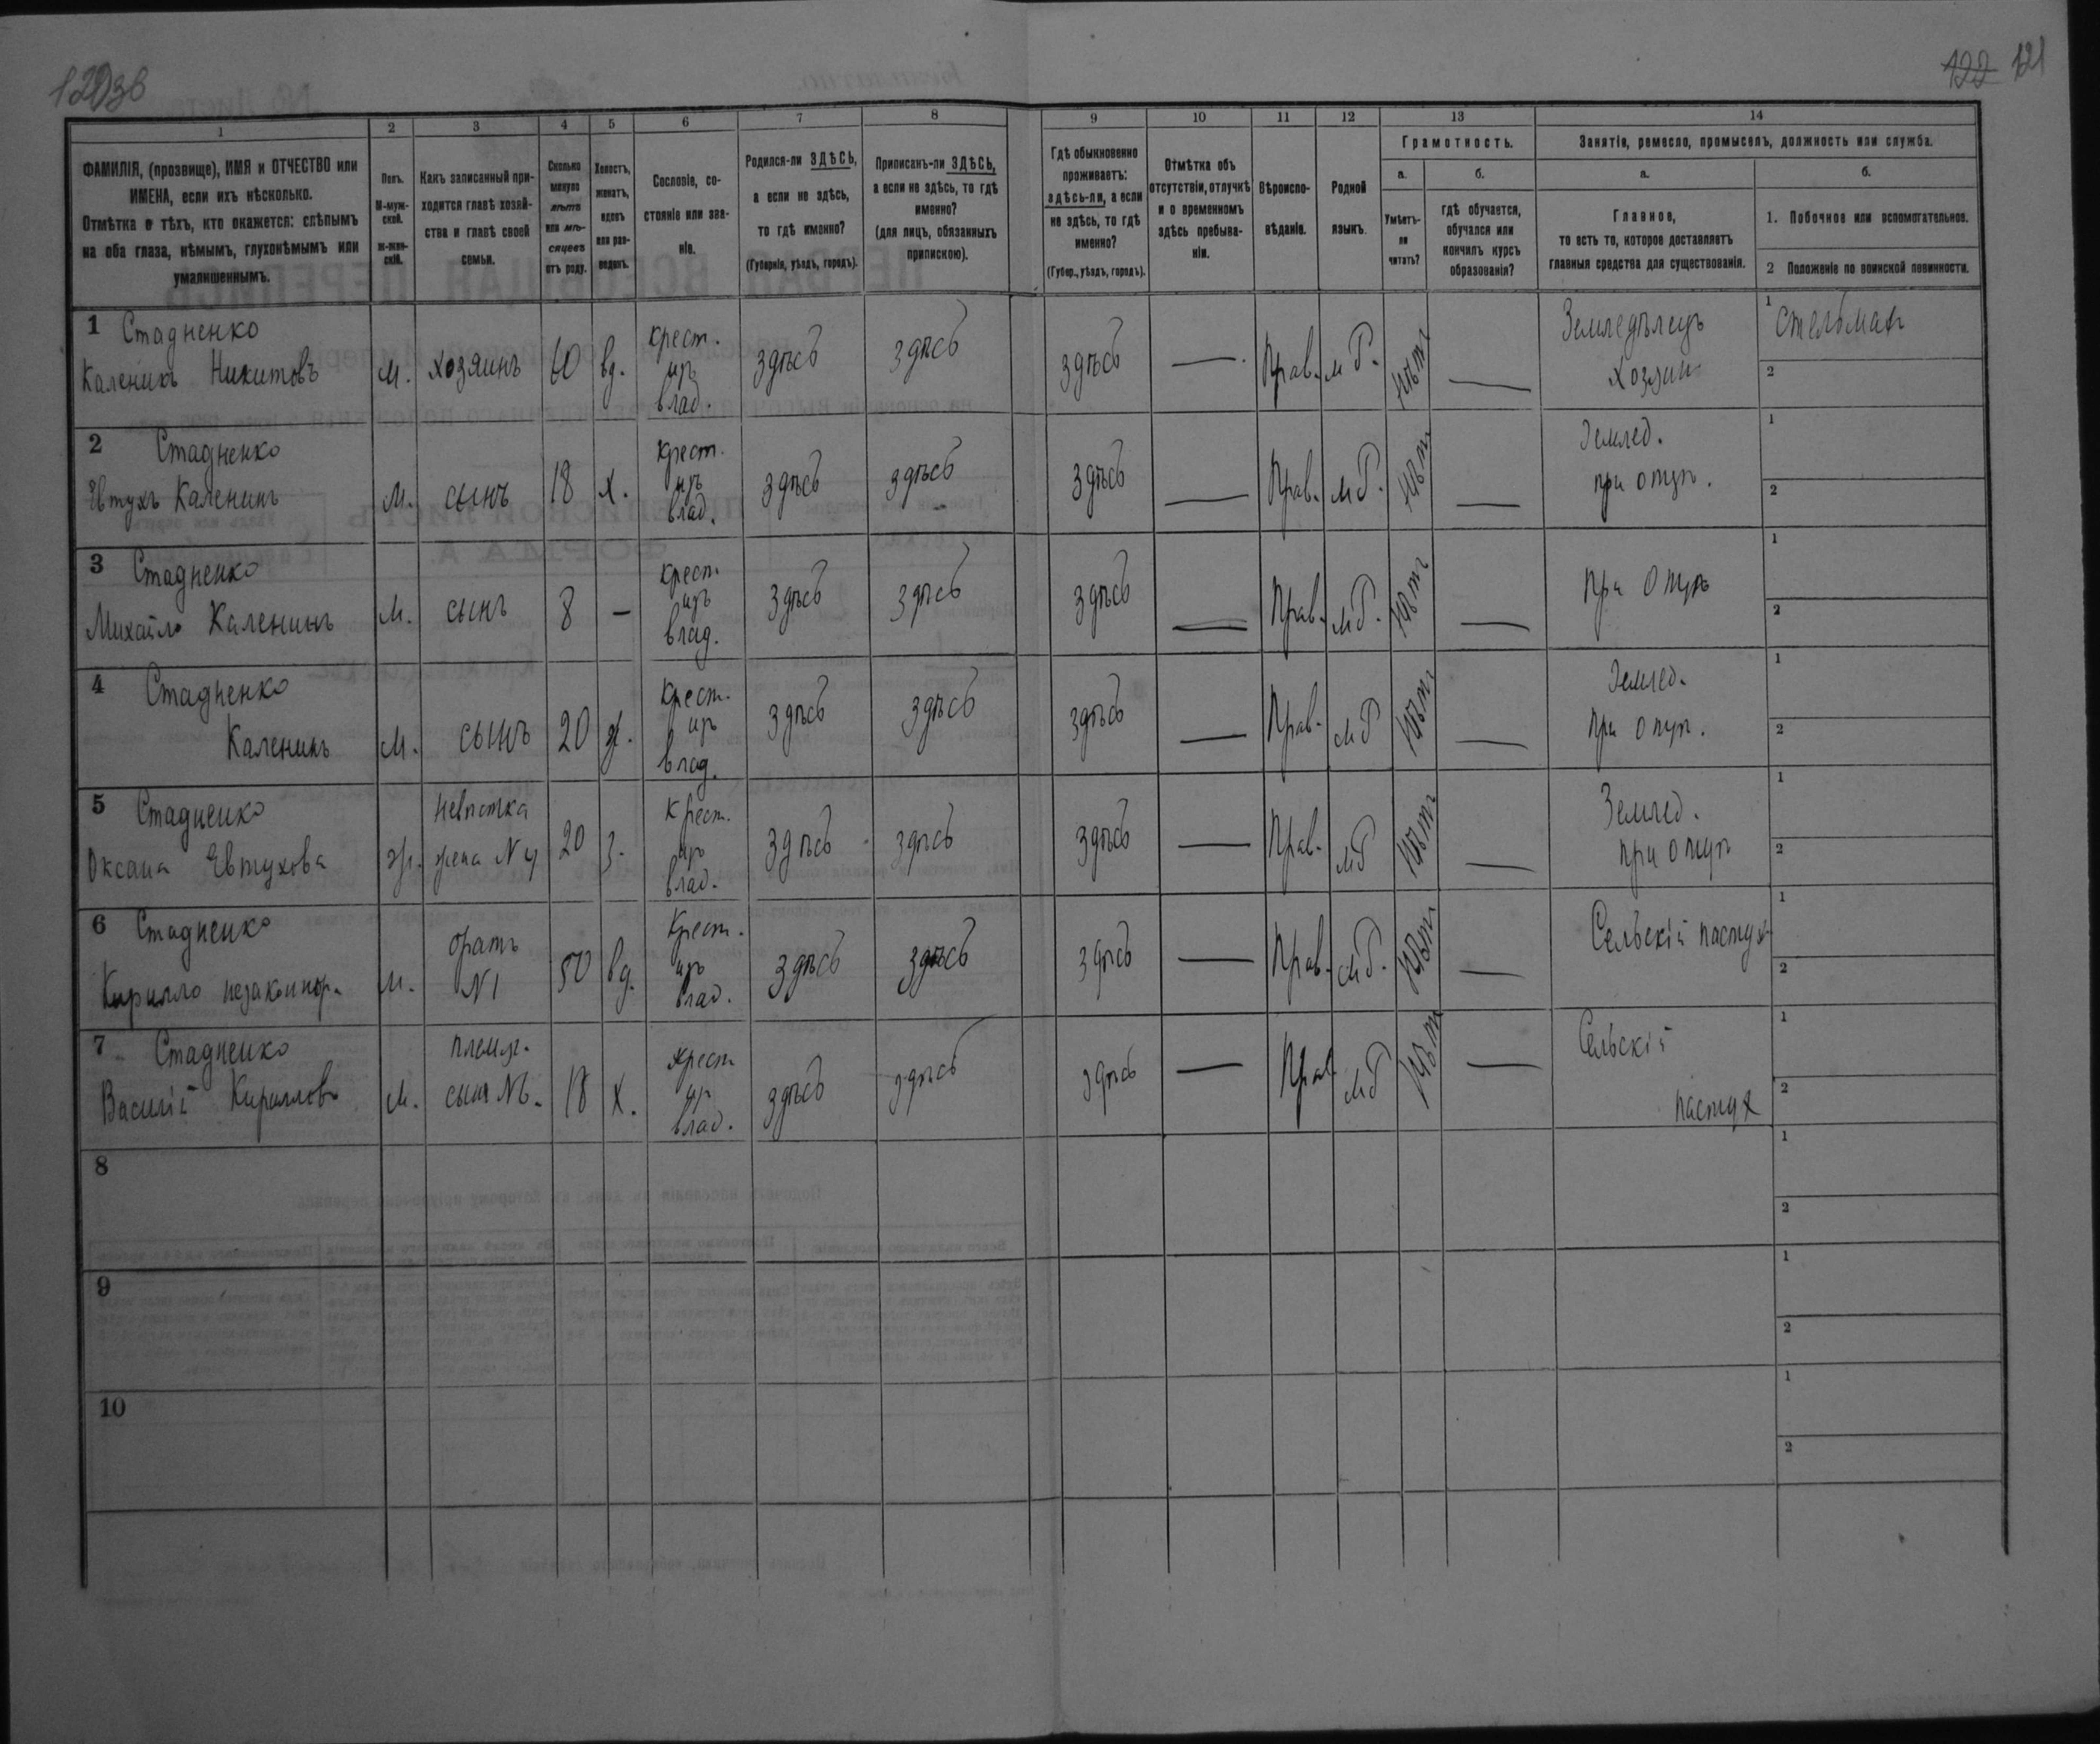 120зв
122 121
1
2
3
4
5
6
7
8
9
10
11
12
13
14
ФАМИЛІЯ, (прозвище), ИМЯ и ОТЧЕСТВО или
ИМЕНА, если ихъ нѣсколько.
Отмѣтка о тѣхъ, кто окажется: слѣпымъ
на оба глаза, нѣмымъ, глухонѣмымъ или
умалишеннымъ.
Полъ.
М-муж-
ской.
ж-жен-
скій.
Какъ записанный при-
ходится главѣ хозяй-
ства и главѣ своей
семьи.
Сколько
минуло
лѣтъ
или мѣ-
сяцевъ
отъ роду.
Холостъ,
женатъ,
вдовъ
или раз-
веденъ.
Сословіе, со-
стояніе или зва-
ніе.
Родился-ли ЗДѢСЬ,
а если не здѣсь,
то гдѣ именно?
(Губернія, уѣздъ, городъ).
Приписанъ-ли ЗДѢСЬ,
а если не здѣсь, то гдѣ
именно?
(для лицъ, обязанныхъ
припискою).
Гдѣ обыкновенно
проживаетъ:
здѣсь-ли, а если
не здѣсь, то гдѣ
именно?
(Губер., уѣздъ, городъ).
Отмѣтка объ
отсутствіи, отлучкѣ
и о временномъ
здѣсь пребыва-
ніи.
Вѣроиспо-
вѣданіе.
Родной
языкъ.
Грамотность.
а.
Умѣетъ-
ли
читать?
б.
гдѣ обучается,
обучался или
кончилъ курсъ
образованія?
Занятіе, ремесло, промыселъ, должность или служба.
а.
Главное,
то есть то, которое доставляетъ
главныя средства для существованія.
б.
1. Побочное или вспомогательное.
2 Положеніе по воинской повинности.
1 Стадненко
Каленикъ Никитовъ
м.
хозяинъ
60
вд.
крест.
изъ
влад.
здѣсь
здѣсь
здѣсь
—
Прав.
мР.
нѣтъ
—
Земледѣлецъ
хозяин
1 стельмах
2
2 Стадненко
Евтухъ Каленинъ
м.
сынъ
18
х.
крест.
изъ
влад.
здѣсь
здѣсь
здѣсь
—
Прав.
мР.
нѣт
—
Землед.
при отцѣ.
1
2
3 Стадненко
Михайло Каленинъ
м.
сынъ
8
—
крест.
изъ
влад.
здѣсь
здѣсь
здѣсь
—
Прав.
мР.
нѣтъ
—
при отцѣ
1
2
4 Стадненко
Каленинъ
м.
сынъ
20
ж.
крест.
изъ
влад.
здѣсь
здѣсь
здѣсь
—
Прав.
мР
нѣтъ
—
Землед.
при отцѣ.
1
2
5 Стадненко
Оксана Евтухова
ж.
невѣстка
жена N 4
20
з.
крест.
изъ
влад.
здѣсь
здѣсь
здѣсь
—
Прав.
мР
нѣтъ
—
Землед.
при отцѣ
1
2
6 Стадненко
Кирилло незаконнор.
м.
братъ
N 1
50
вд.
Крест.
изъ
влад.
здѣсь
здѣсь
здѣсь
—
Прав.
мР.
нѣтъ
—
Сельскій пастух
1
2
7 Стадненко
Василій Кириллов
м.
племя.
сын №6.
18
х.
крест
из
влад.
здѣсь
здѣсь
здѣсь
—
Прав
мР
нѣт
—
Сельскій
пастух
1
2
8
1
2
9
1
2
10
1
2